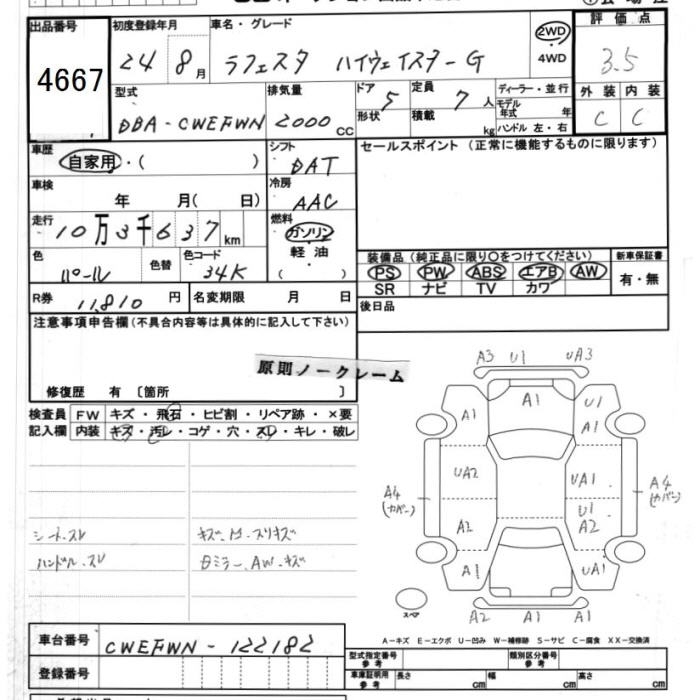 出品番号 初度登録年月 車名・グレード 評価点
4667 24 8月 ラフェスタ ハイウェイスターG 2WD 4WD 3.5
型式 排気量 ドア 形状 定員 積載 ディーラー・並行 外装 内装
DBA-CWEFWN 2000 CC 5 7人 kg モデル年式 年 ハンドル 左・右 C C
車歴 自家用・( ) シフト DAT セールスポイント (正常に機能するものに限ります)
車検 年 月( 日) 冷房 AAC
走行 10万3千637km 燃料 ガソリン 軽油 ( )
色 パール 色替 色コード 34K 装備品 (純正品に限り○をつけてください) 新車保証書
PS PW ABS エアB AW 有・無
SR ナビ TV カワ
R券 11,810円 名変期限 月 日 後日品
注意事項申告欄 (不具合内容等は具体的に記入して下さい)
原則ノークレーム
修復歴 有 〔箇所 〕
検査員 FW キズ・飛石・ヒビ割・リペア跡・×要
記入欄 内装 キズ・汚レ・コゲ・穴・スレ・キレ・破レ
シートスレ
ハンドル・スレ
Dミラー、AW・キズ
A3 U1 UA3
A1 A1 U1
A1
UA2 UA1
A4 (カバー) U1 A4 (カバー)
A2 A2
A1 A1 UA1
スペア A2 A1 A1
A-キズ E-エクボ U-凹み W-補修跡 S-サビ C-腐食 XX-交換済
車台番号 CWEFWN-122182
型式指定番号 参考 類別区分番号 参考
登録番号 車庫証明用 参考 長さ cm 幅 cm 高さ cm